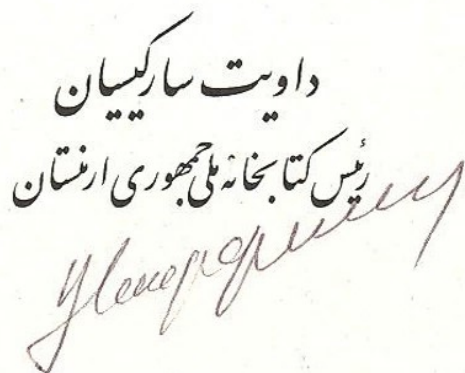 داویت سارکیسیان
رئیس کتابخانه ملی جمهوری ارمنستان